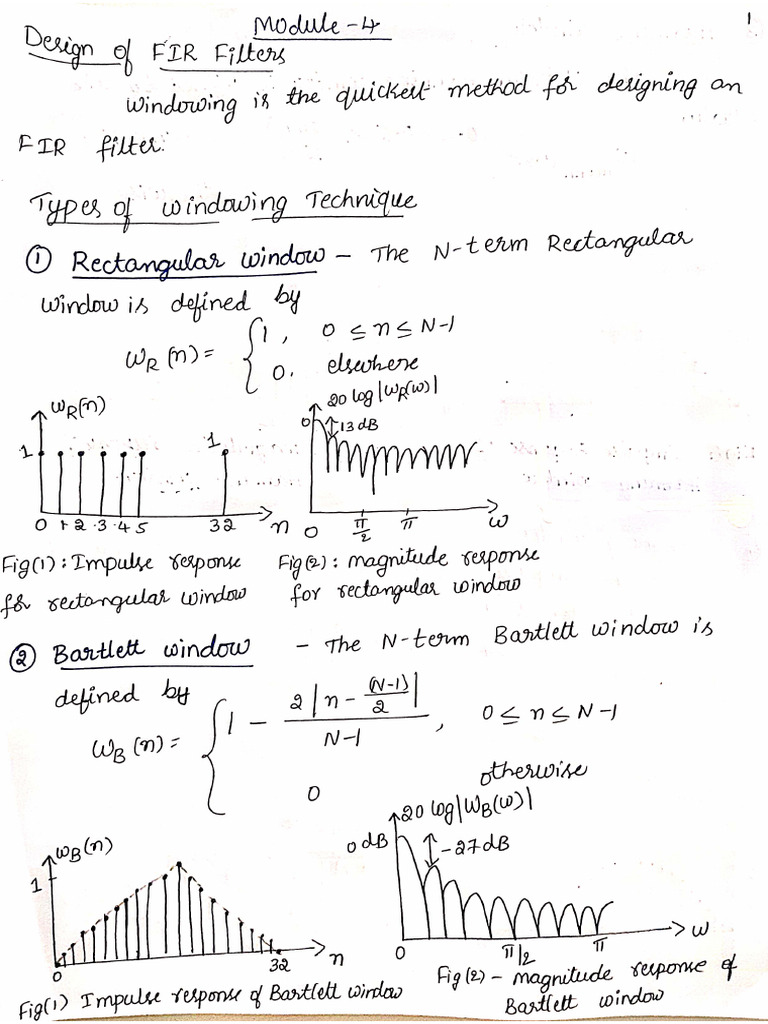 1
Module-4
Design of FIR Filters
windowing is the quickest method for designing an
FIR filter.
Types of windowing Technique
① Rectangular window - The N-term Rectangular
window is defined by
ω_R (n) = { 1, 0 ≤ n ≤ N-1
0, elsewhere
ω_R(n)
1 1
0 1 2 3 4 5 32 n
20 log|W_R(ω)|
0 13 dB
0 π/2 π ω
Fig(1): Impulse response
for rectangular window
Fig(2): magnitude response
for rectangular window
② Bartlett window - The N-term Bartlett window is
defined by
ω_B (n) = { 1 - 2|n - (N-1)/2| / N-1, 0 ≤ n ≤ N-1
0 otherwise
ω_B(n)
1
0 32 n
20 log|W_B(ω)|
0 dB -27 dB
0 π/2 π ω
Fig(1) Impulse response of Bartlett window
Fig(2) - magnitude response of
Bartlett window